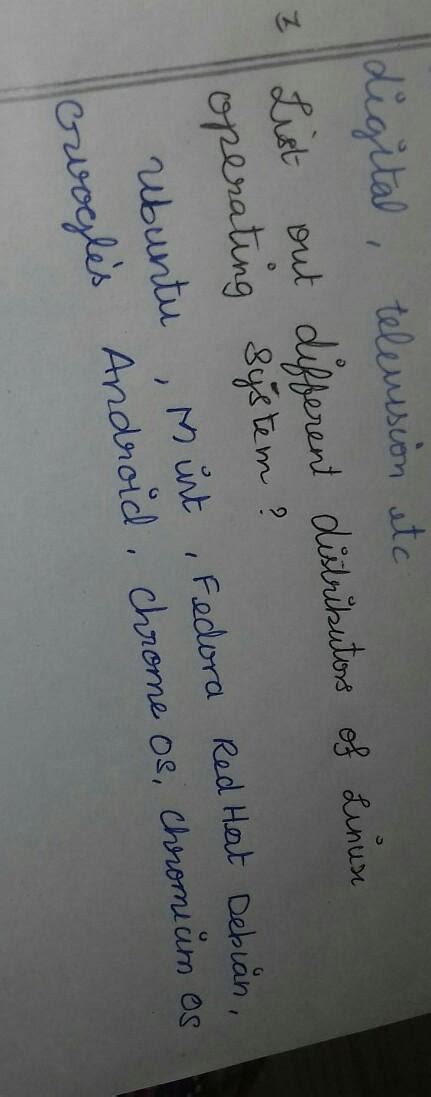 digital, television etc
List out different distributors of Linux
operating system?
Ubuntu, Mint, Fedora Red Hat Debian,
Google's Android, Chrome OS, Chromium OS